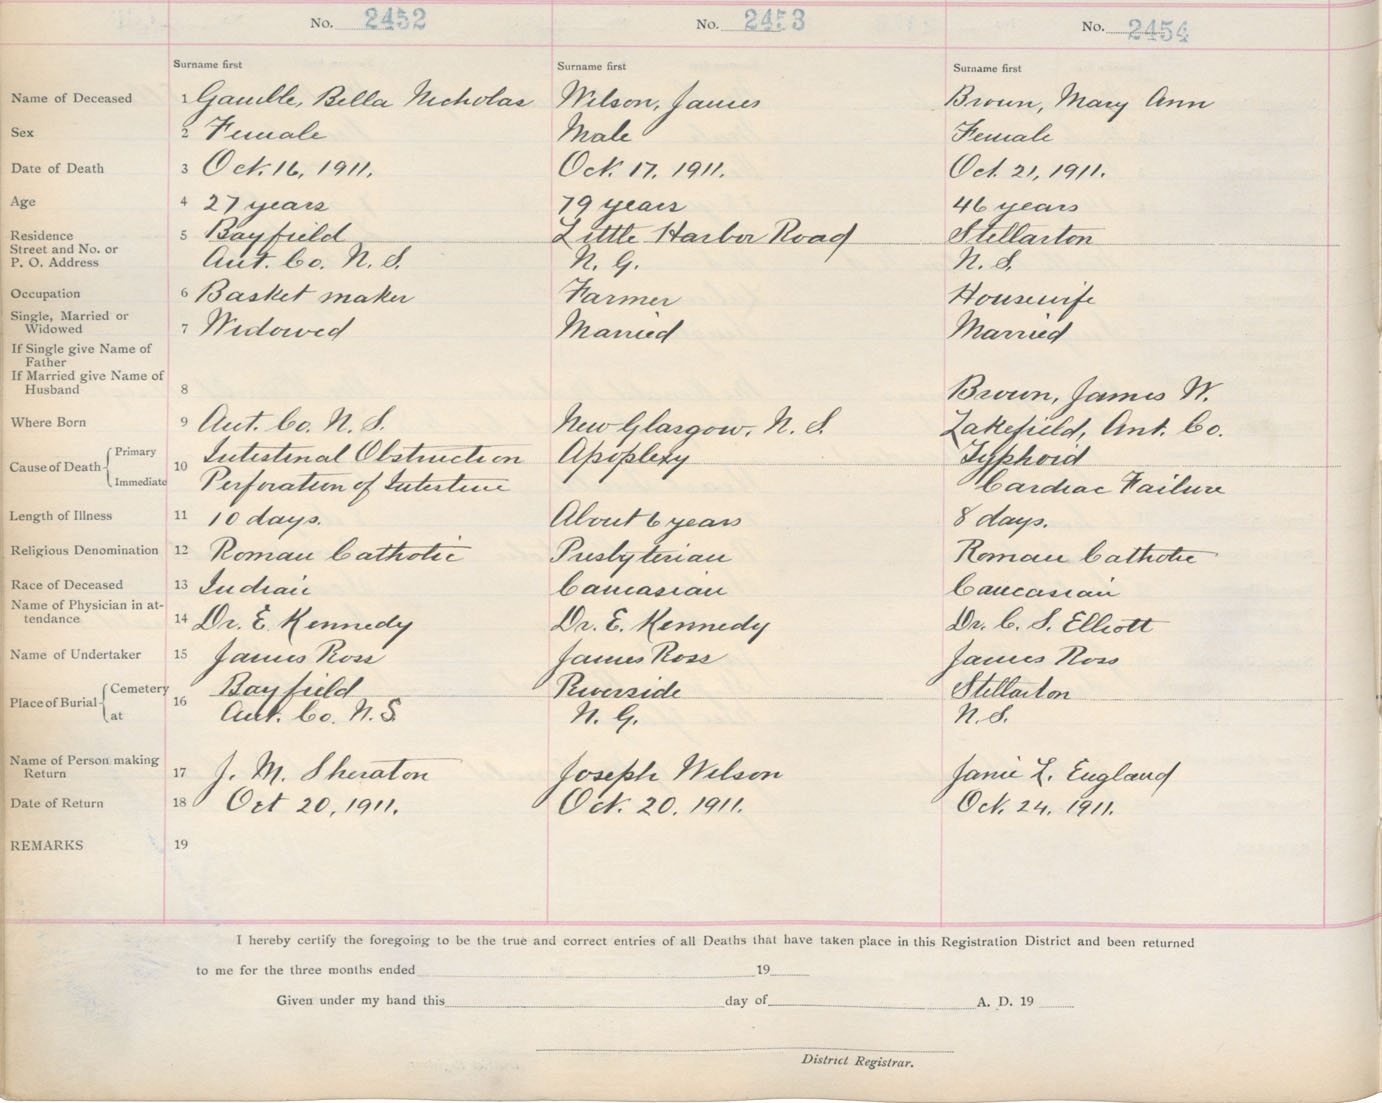 No. 2452 No. 2453 No. 2454
Surname first Surname first Surname first
Name of Deceased 1 Gamble, Bella Nicholas Wilson, James Brown, Mary Ann
Sex 2 Female Male Female
Date of Death 3 Oct. 16, 1911. Oct. 17, 1911. Oct. 21, 1911.
Age 4 27 years 79 years 46 years
Residence 5 Bayfield Little Harbor Road Stellarton
Street and No. or
P. O. Address Ant. Co. N. S. N. G. N. S.
Occupation 6 Basket maker Farmer Housewife
Single, Married or
Widowed 7 Widowed Married Married
If Single give Name of
Father
If Married give Name of
Husband 8 Brown, James W.
Where Born 9 Ant. Co. N. S. New Glasgow, N. S. Lakefield, Ant. Co.
Cause of Death 10 Primary Intestinal Obstruction Apoplexy Typhoid
Immediate Perforation of Intestine Cardiac Failure
Length of Illness 11 10 days. About 6 years 8 days.
Religious Denomination 12 Roman Catholic Presbyterian Roman Catholic
Race of Deceased 13 Indian Caucasian Caucasian
Name of Physician in at-
tendance 14 Dr. E. Kennedy Dr. E. Kennedy Dr. C. S. Elliott
Name of Undertaker 15 James Ross James Ross James Ross
Place of Burial 16 Cemetery Bayfield Riverside Stellarton
at Ant. Co. N. S. N. G. N. S.
Name of Person making
Return 17 J. M. Sheraton Joseph Wilson Janie L. England
Date of Return 18 Oct 20, 1911. Oct. 20, 1911. Oct. 24, 1911.
REMARKS 19
I hereby certify the foregoing to be the true and correct entries of all Deaths that have taken place in this Registration District and been returned
to me for the three months ended 19
Given under my hand this day of A. D. 19
District Registrar.